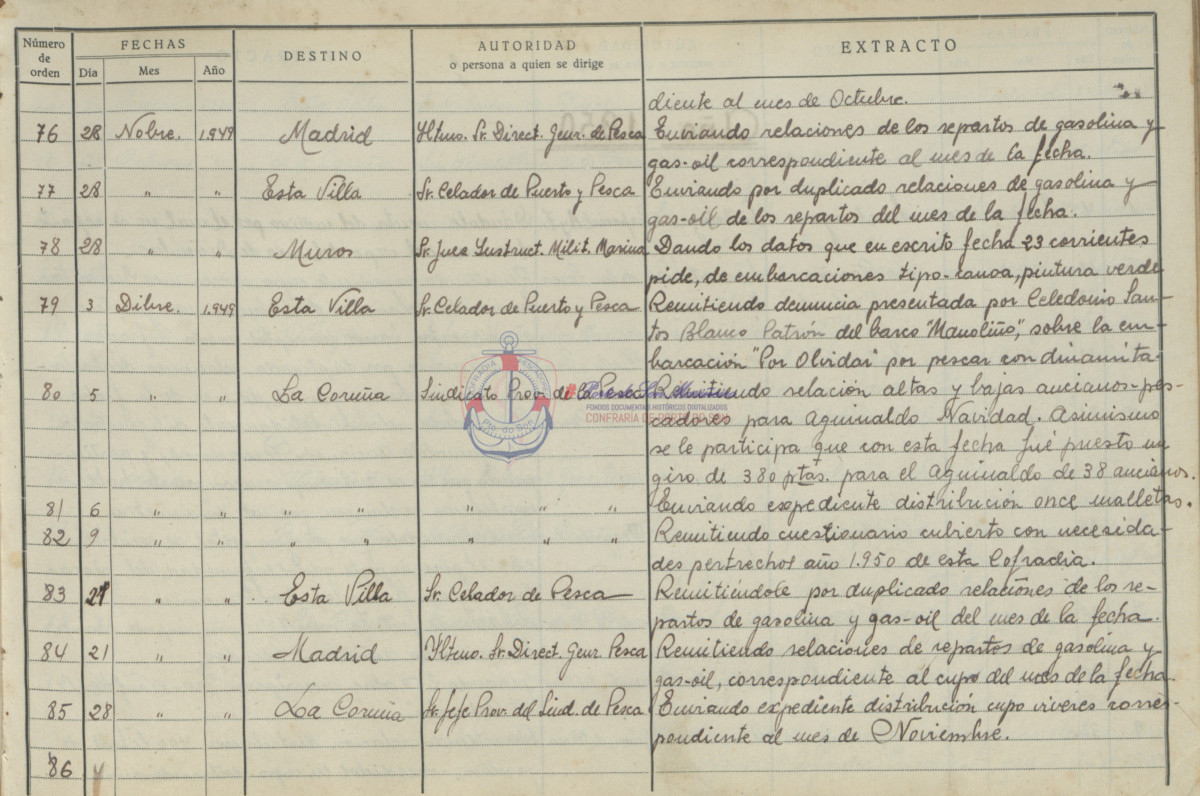 Número de orden FECHAS Día Mes Año DESTINO AUTORIDAD o persona a quien se dirige EXTRACTO
diente al mes de Octubre.
76 28 Nobre. 1.949 Madrid Yltmo. Sr. Direct. Genr. de Pesca Enviando relaciones de los repartos de gasolina y
gas-oil correspondiente al mes de la fecha.
77 28 " " Esta Villa Sr. Celador de Puerto y Pesca Enviando por duplicado relaciones de gasolina y
gas-oil de los repartos del mes de la fecha.
78 28 " " Muros Sr. Juez Instruct. Milit. Marina Dando los datos que en escrito fecha 23 corrientes
pide, de embarcaciones tipo-canoa, pintura verde
79 3 Dibre. 1.949 Esta Villa Sr. Celador de Puerto y Pesca Remitiendo denuncia presentada por Celedonio San-
tos Blanco Patrón del barco "Manoliño", sobre la em-
barcación "Por Olvidar" por pescar con dinamita.
80 5 " " La Coruña Sindicato Prov. de la Pesca Remitiendo relación altas y bajas ancianos-pes-
cadores para Aguinaldo Navidad. Asimismo
se le participa que con esta fecha fué puesto un
giro de 380 ptas. para el Aguinaldo de 38 ancianos.
81 6 " " " " " " " Enviando expediente distribución once malletas.
82 9 " " " " " " " Remitiendo cuestionario cubierto con necesida-
des pertrechos año 1.950 de esta Cofradia.
83 21 " " Esta Villa Sr. Celador de Pesca Remitiéndole por duplicado relaciones de los re-
partos de gasolina y gas-oil del mes de la fecha.
84 21 " " Madrid Yltmo. Sr. Direct. Genr. Pesca Remitiendo relaciones de repartos de gasolina y
gas-oil, correspondiente al cupo del mes de la fecha
85 28 " " La Coruña Sr. Jefe Prov. del Sind. de Pesca Enviando expediente distribución cupo viveres corres-
pondiente al mes de Noviembre.
86
FONDOS DOCUMENTALES HISTÓRICOS DIGITALIZADOS
CONFRARÍA DE PORTO DO SON
Pto. do Son